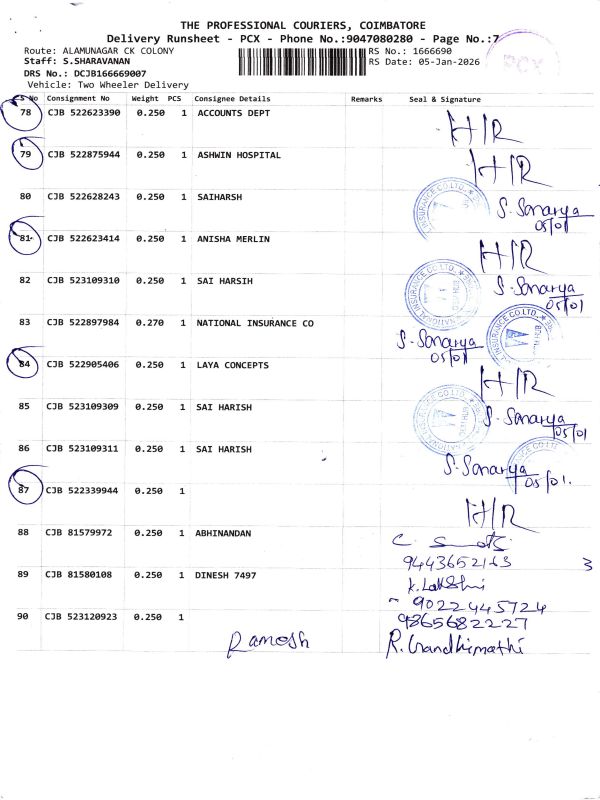 THE PROFESSIONAL COURIERS, COIMBATORE
Delivery Runsheet - PCX - Phone No.:9047080280 - Page No.:7
Route: ALAMUNAGAR CK COLONY
RS No.: 1666690
Staff: S.SHARAVANAN
RS Date: 05-Jan-2026
PCX
DRS No.: DCJB166669007
Vehicle: Two Wheeler Delivery
S No Consignment No Weight PCS Consignee Details Remarks Seal & Signature
78 CJB 522623390 0.250 1 ACCOUNTS DEPT H/R
79 CJB 522875944 0.250 1 ASHWIN HOSPITAL H/R
80 CJB 522628243 0.250 1 SAIHARSH S. Sonarya 05/01
81 CJB 522623414 0.250 1 ANISHA MERLIN H/R
82 CJB 523109310 0.250 1 SAI HARSIH NATIONAL INSURANCE CO LTD. S. Sonarya 05/01
83 CJB 522897984 0.270 1 NATIONAL INSURANCE CO S. Sonarya 05/01
84 CJB 522905406 0.250 1 LAYA CONCEPTS H/R
85 CJB 523109309 0.250 1 SAI HARISH S. Sonarya 05/01
86 CJB 523109311 0.250 1 SAI HARISH S. Sonarya 05/01.
87 CJB 522339944 0.250 1 H/R
88 CJB 81579972 0.250 1 ABHINANDAN
9443652163 3
89 CJB 81580108 1 0.250 DINESH 7497 K. Lakshmi
9022445724
90 CJB 523120923 0.250 1 9865682227
Ramesh R. Gandhimathi